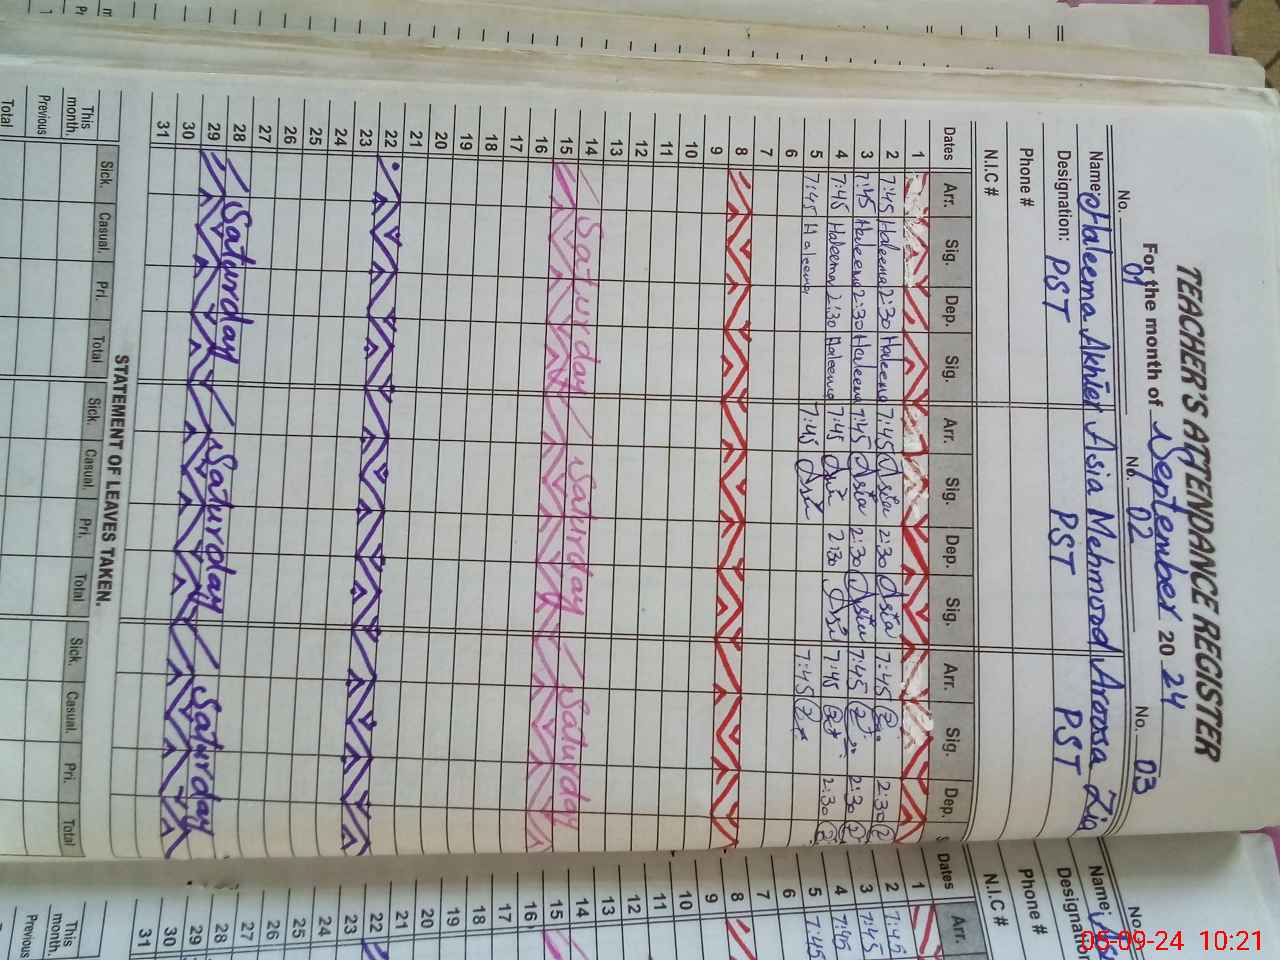 TEACHER'S ATTENDANCE REGISTER
For the month of September 20 24
No. 01 No. 02 No. 03
Name: Haleema Akhter Asia Mehmood Aroosa Zia
Designation: PST PST PST
Phone #
N.I.C #
Dates Arr. Sig. Dep. Sig. Arr. Sig. Dep. Sig. Arr. Sig. Dep.
1
2 7:45 Haleema 2:30 Haleema 7:45 Asia 2:30 Asia 7:45 2:30
3 7:45 Haleema 2:30 Haleema 7:45 Asia 2:30 Asia 7:45 2:30
4 7:45 Haleema 2:30 Haleema 7:45 2:30 7:45 2:30
5 7:45 Haleema 7:45 7:45
6
7
8
9
10
11
12
13
14 Saturday Saturday Saturday
15
16
17
18
19
20
21
22
23
24
25
26
27
28 Saturday Saturday Saturday
29
30
31
STATEMENT OF LEAVES TAKEN.
Sick. Casual. Pri. Total Sick. Casual. Pri. Total Sick. Casual. Pri. Total
This month.
Previous
Total
No.
Name:
Designation
Phone #
N.I.C #
Dates Arr.
1
2 7:45
3 7:45
4 7:45
5 7:45
6
7
8
9
10
11
12
13
14
15
16
17
18
19
20
21
22
23
24
25
26
27
28
29
30
31
This month.
Previous
05-09-24 10:21